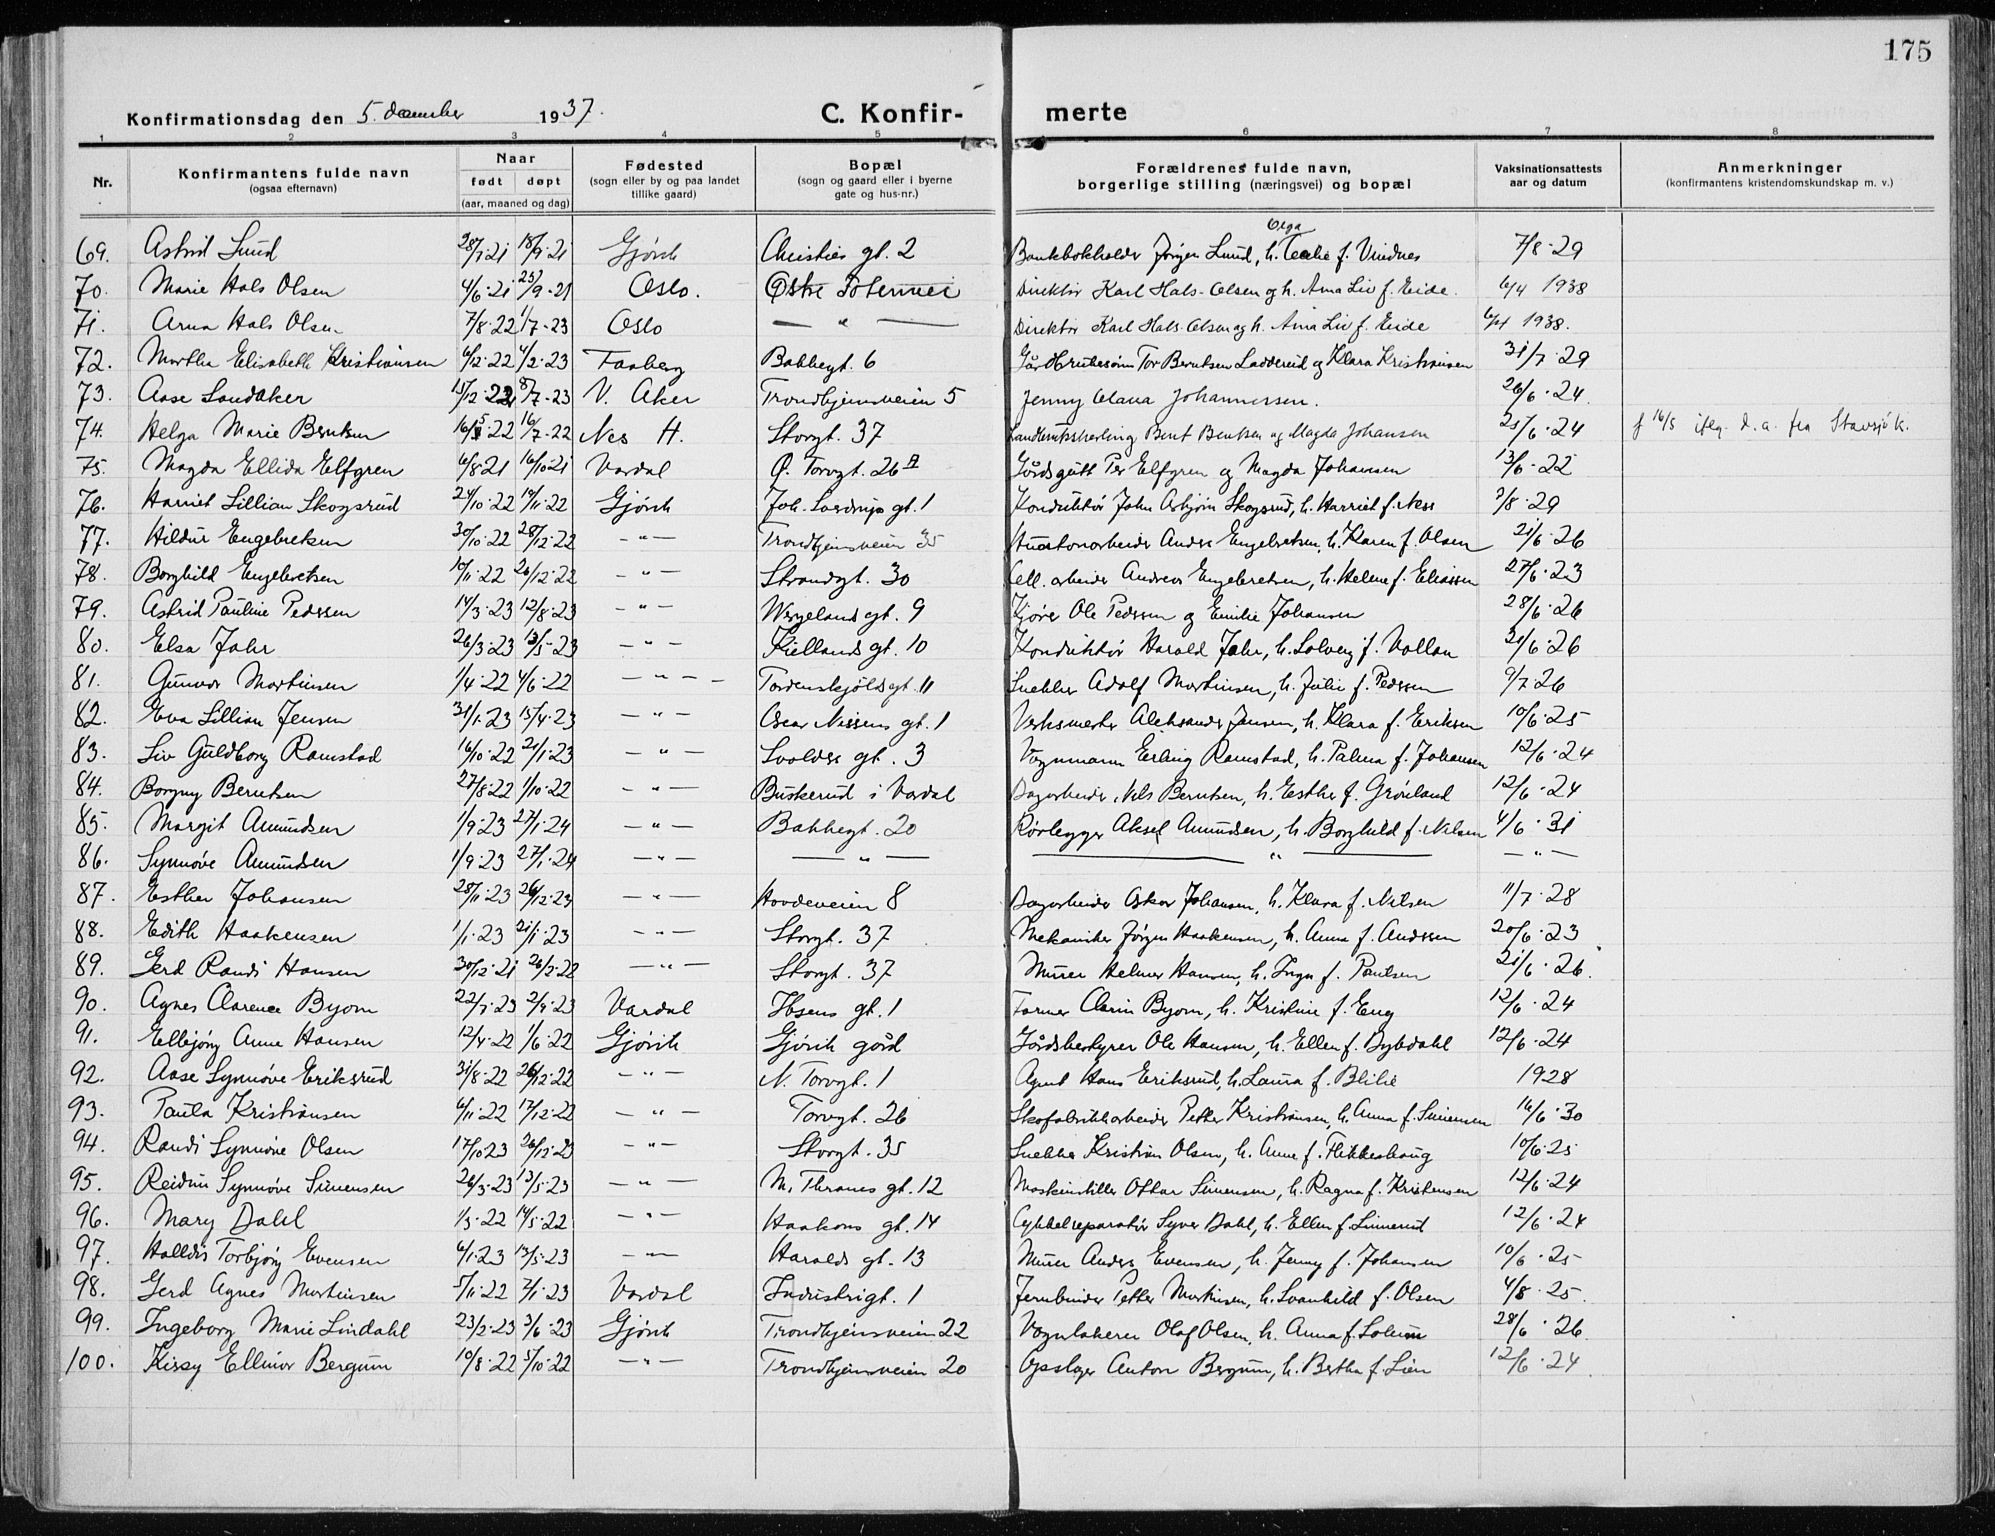 175
Konfirmationsdag den 5. december 1937.
C. Konfirmerte
1 2 3 4 5 6 7 8
Nr. Konfirmantens fulde navn (ogsaa efternavn) Naar født døpt (aar, maaned og dag) Fødested (sogn eller by og paa landet tillike gaard) Bopæl (sogn og gaard eller i byerne gate og hus-nr.) Forældrenes fulde navn, borgerlige stilling (næringsvei) og bopæl Vaksinationsattests aar og datum Anmerkninger (konfirmantens kristendomskundskap m. v.)
69. Astrid Lund 28/7·21 18/9·21 Gjøvik Christies gt. 2 Bankbokholder Jørgen Lund, h. Olga f. Vindnes 7/8·29
70. Marie Hals Olsen 4/6·21 25/9·21 Oslo. Østre Totenvei Direktør Karl Hals-Olsen og h. Anna Liv f. Eide. 6/4 1938
71. Anna Hals Olsen 7/8·22 1/7·23 Oslo — " — Direktør Karl Hals-Olsen og h. Anna Liv f. Eide 6/4 1938.
72. Martha Elisabeth Kristiansen 6/12·22 4/2·23 Faaberg Bakkegt. 6 Tor Berntsen Ladderud og Klara Kristiansen 31/7·29
73. Aase Sandaker 15/12·22 8/7·23 V. Aker Trondhjemsveien 5 Jenny Johannessen. 26/6·24
74. Helga Marie Berntsen 16/5·22 16/7·22 Nes H. Storgt. 37 Bernt Berntsen og Magda Johansen 25/6·24 f 16/5 iflg. d.a. fra Stavsjø k.
75. Magda Ellida Elfgren 6/8·21 16/10·21 Vardal Ø. Torvgt. 26 A Gårdsgutt Per Elfgren og Magda Johansen 13/6·22
76. Harriet Lillian Skogsrud 24/10·22 19/11·22 Gjøvik Joh. Sverdrups gt. 1 Konduktør John Asbjørn Skogsrud, h. Harriet f. Ness 3/8·29
77. Hildur Engebretsen 30/10·22 28/12·22 — " — Trondhjemsveien 35 Anders Engebretsen, h. Karen f. Olsen 21/6·26
78. Borghild Engebretsen 10/11·22 26/12·22 — " — Strandgt. 30 Cell. arbeider Andreas Engebretsen, h. Helene f. Eliassen 27/6·23
79. Astrid Pauline Pedersen 14/3·23 12/8·23 — " — Wergelands gt. 9 Kjører Ole Pedersen og Emilie Johansen 28/6·26
80. Elsa Jahr 26/3·23 13/5·23 — " — Kiellands gt. 10 Konduktør Harald Jahr, h. Solveig f. Vollan 21/6·26
81. Gunvor Martinsen 1/4·22 4/6·22 — " — Tordenskjolds gt. 11 Snekker Adolf Martinsen, h. Julie f. Pedersen 9/7·26
82. Eva Lillian Jensen 31/1·23 15/4·23 — " — Oscar Nissens gt. 1 Verksmester Aleksander Jensen, h. Klara f. Eriksen 10/6·25
83. Liv Guldborg Ramstad 16/10·22 21/1·23 — " — Svolders gt. 3 Vognmann Erling Ramstad, h. Palma f. Johansen 12/6·24
84. Borgny Berntsen 27/8·22 1/10·22 — " — Buskerud i Vardal Dagarbeider Nils Berntsen, h. Esther f. Grønland 12/6·24
85. Margit Amundsen 1/9·23 27/1·24 — " — Bakkegt. 20 Rørlegger Aksel Amundsen, h. Borghild f. Nilsen 4/6·31
86. Synnøve Amundsen 1/9·23 27/1·24 — " — — " — — " — — " —
87. Esther Johansen 28/11·23 26/12·23 — " — Hovdeveien 8 Dagarbeider Oskar Johansen, h. Klara f. Nilsen 11/7·28
88. Edith Haakensen 1/1·23 21/1·23 — " — Storgt. 37 Mekaniker Jørgen Haakensen, h. Anna f. Andersen 20/6·23
89. Gerd Randi Hansen 30/12·21 26/2·22 — " — Storgt. 37 Murer Helmer Hansen, h. Inga f. Paulsen 21/6·26
90. Agnes Clarence Byom 22/7·23 2/9·23 Vardal Ibsens gt. 1 Farmer Clarin Byom, h. Kristine f. Eng 12/6·24
91. Elbjørg Anne Hansen 12/4·22 1/6·22 Gjøvik Gjøvik gård Gårdsbestyrer Ole Hansen, h. Ellen f. Dybdahl 12/6·24
92. Aase Synnøve Eriksrud 31/8·22 26/12·22 — " — N. Torvgt. 1 Agent Hans Eriksrud, h. Laura f. 1928
93. Paula Kristiansen 6/11·22 17/12·22 — " — Torvgt. 26 Skofabrikkarbeider Petter Kristiansen, h. Anna f. Simensen 16/6·30
94. Randi Synnøve Olsen 17/10 23 26/12·23 — " — Storgt. 35 Snekker Kristian Olsen, h. Anne f. Flikkeshaug 10/6·25
95. Reidun Synnøve Simensen 26/3·23 13/5·23 — " — M. Thranes gt. 12 Maskinstiller Ottar Simensen, h. Ragna f. Kristensen 12/6·24
96. Mary Dahl 1/3·22 14/5·22 — " — Haakons gt. 14 Cykkelreparatør Syver Dahl, h. Ellen f. Linnerud 12/6·24
97. Halldis Torbjørg Evensen 4/1·23 13/5·23 — " — Haralds gt. 13 Murer Anders Evensen, h. Jenny f. Johansen 10/6·25
98. Gerd Agnes Martinsen 5/11·22 7/1·23 Vardal Industrigt. 1 Jernbinder Petter Martinsen, h. Svanhild f. Olsen 4/8·25
99. Ingeborg Marie Lindahl 23/2·23 3/6·23 Gjøvik Trondhjemsveien 22 Vognlakerer Olaf Olsen, h. Anna f. Solum 28/6·26
100. Kissy Ellinor Bergum 10/8·22 5/10·22 — " — Trondhjemsveien 20 Anton Bergum, h. Bertha f. Lien 12/6·24